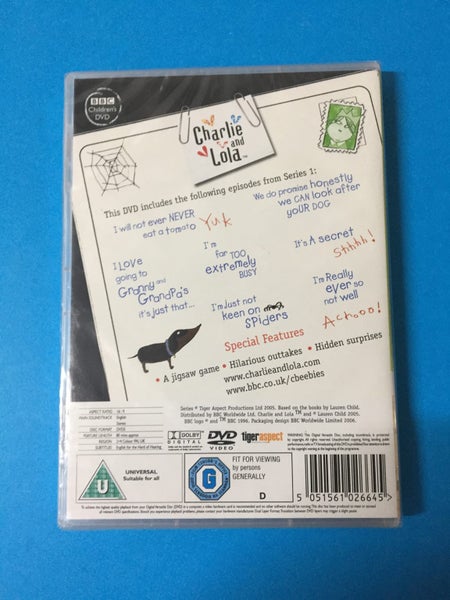 BBC
Children's
DVD
Charlie
and
Lola™
This DVD includes the following episodes from Series 1:
I will not ever NEVER
eat a tomato
Yuk
We do promise honestly
we CAN look after
yoUR DOG
I LOVE
going to
Granny and
GrandPa's
it's just that...
I'm
far TOO
extremely
BUSY
It's A secret
Shhhh!
I'm Just not
keen on
SPiders
I'm Really
ever so
not well
Achooo!
Special Features
• A jigsaw game • Hilarious outtakes • Hidden surprises
www.charlieandlola.com
www.bbc.co.uk/cbeebies
Series © Tiger Aspect Productions Ltd 2005. Based on the books by Lauren Child.
Distributed by BBC Worldwide Ltd. Charlie and Lola ™ and © Lauren Child 2005.
BBC logo © and ™ BBC 1996. Packaging design BBC Worldwide Limited 2006.
ASPECT RATIO
MAIN SOUNDTRACK English
Stereo
DISC FORMAT DVD5
FEATURE LENGTH
REGION
SUBTITLES English for the Hard of Hearing
DOLBY
DIGITAL
DVD
VIDEO
tigeraspect
U
UNIVERSAL
Suitable for all
G
FIT FOR VIEWING
by persons
GENERALLY
D
5 051561 026645